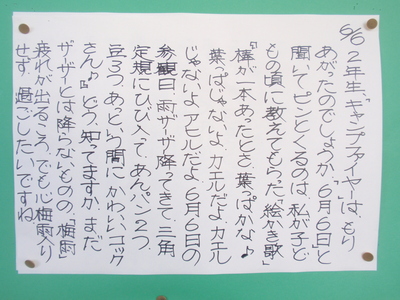 6/6 2年生、「キャンプファイヤー」は、もり
あがったのでしょうか。「6月6日」と
聞いて、ピンとくるのは、私が子ど
もの頃に教えてもらった「絵かき歌」
『♪棒が一本あったとさ、葉っぱかな♪
葉っぱじゃないよ、カエルだよ、カエル
じゃないよ、アヒルだよ、6月6日の
参観日、雨ザーザー降ってきて、三角
定規にひび入って、あんパン2つ、
豆3つ、あっという間に、かわいいコック
さん♪』どう、知ってますか。まだ
ザーザーとは降らないものの、「梅雨」
疲れが出るころ。でも心梅雨入り
せず、過ごしたいですね